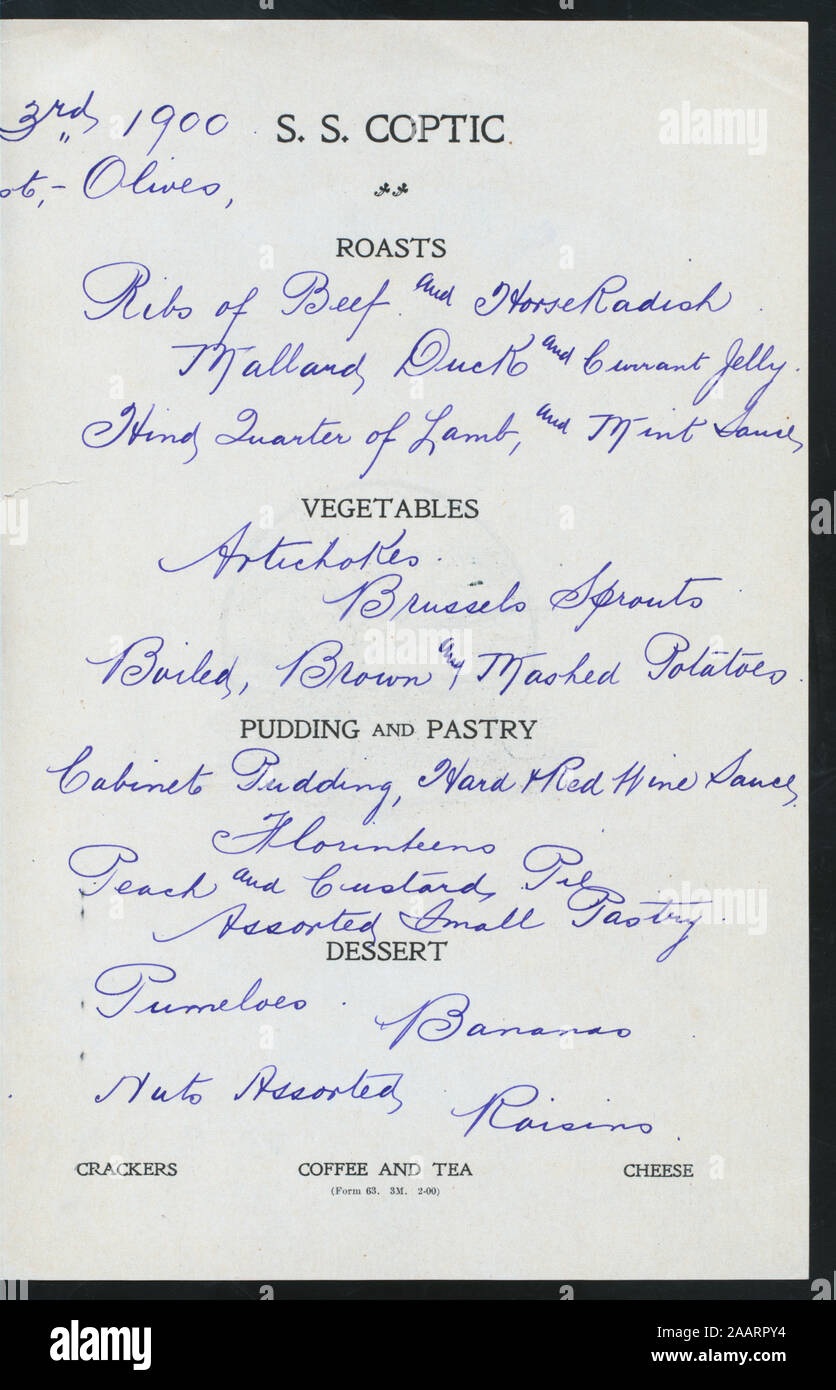 3rd, 1900 S. S. COPTIC.
Olives,
ROASTS
Ribs of Beef. and HorseRadish.
Mallard, Duck and Currant Jelly.
Hind, Quarter of Lamb, and Mint Sauce,
VEGETABLES
Artichokes.
Brussels Sprouts
Boiled, Brown and, Mashed Potatoes.
PUDDING AND PASTRY
Cabinet Pudding, Hard & Red Wine Sauce,
Florinteens
Peach and Custard, Pie
Assorted, Small Pastry.
DESSERT
Pumeloes.
Bananas
Nuts Assorted,
Raisins.
CRACKERS COFFEE AND TEA CHEESE
(Form 63. 3M. 2-00)
alamy
alamy
alamy
alamy
Image ID: 2AARPY4
www.alamy.com